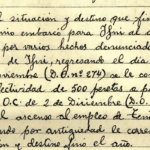 l situación y destino que fi
mo embarcó para Ifni al o
por varios hechos denunciado
de Ifni, regresando el dia
viembre (D.O. nº 274) se le co
ectividad de 500 pesetas a p
O.C. de 2 de Diciembre (D.O.
al ascenso al empleo de Ten
ole por antigüedad le corre
ión y destino fino el año.